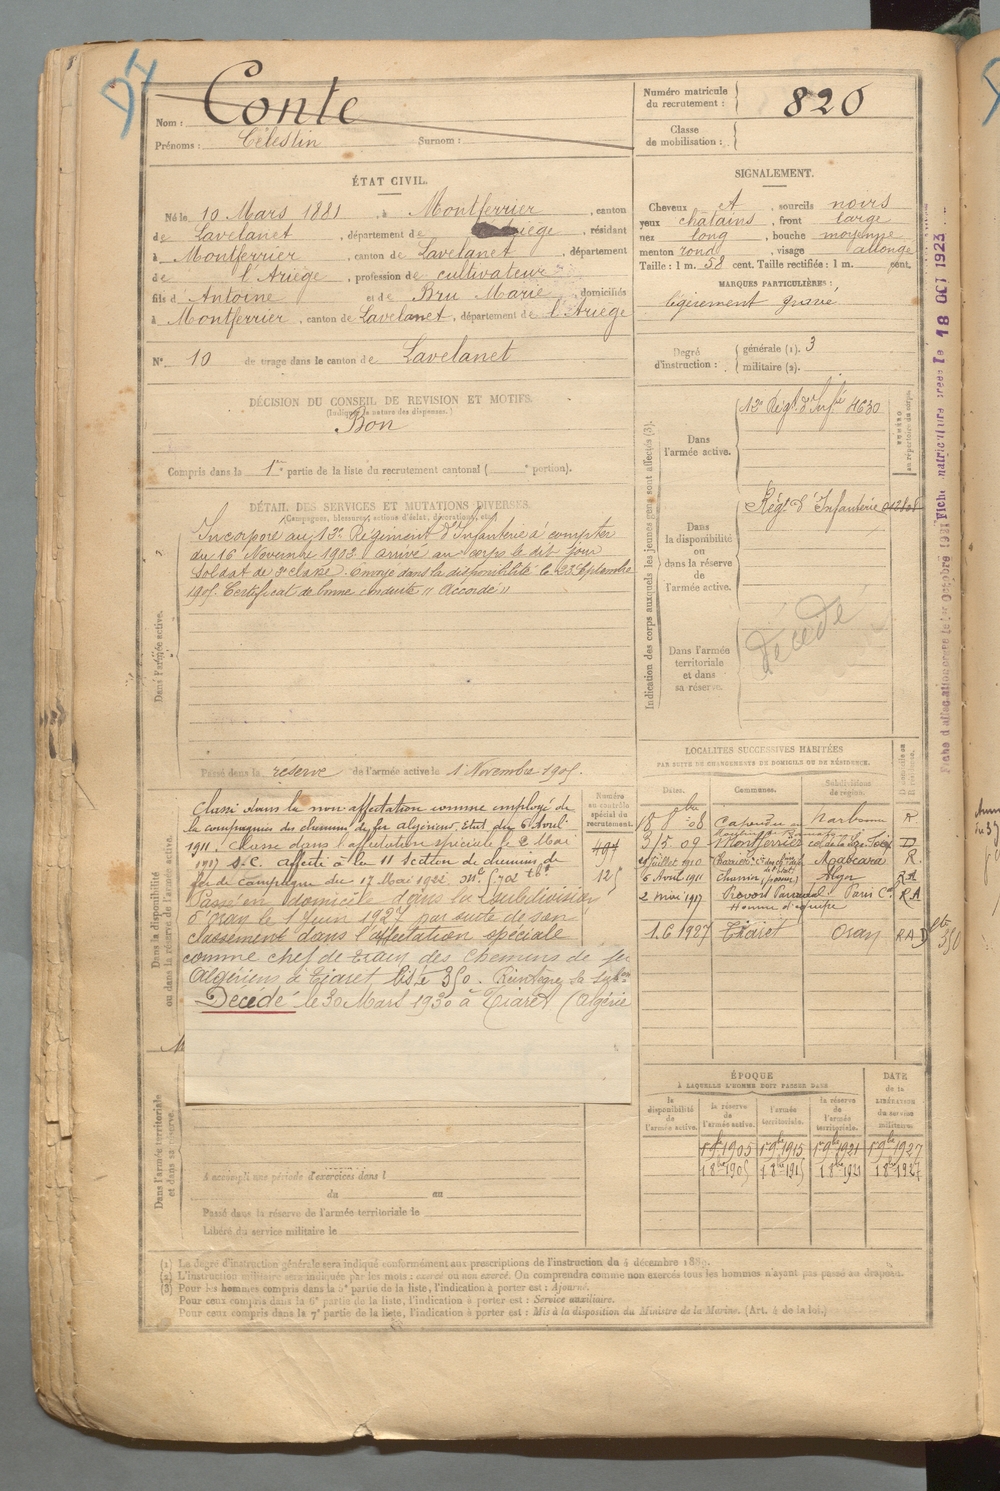 DI
Nom : Conte
Prénoms : Célestin Surnom :
Numéro matricule du recrutement : 820
Classe de mobilisation :
ÉTAT CIVIL.
Né le 10 Mars 1881, à Montferrier, canton
de Lavelanet, département de l'Ariège, résidant
à Montferrier, canton de Lavelanet, département
de l'Ariège, profession de cultivateur
fils d'Antoine et de Bru Marie, domiciliés
à Montferrier, canton de Lavelanet, département de l'Ariège
N° 10 de tirage dans le canton de Lavelanet
SIGNALEMENT.
Cheveux et, sourcils noirs
yeux châtains, front large
nez long, bouche moyenne
menton rond, visage allongé
Taille : 1 m. 58 cent. Taille rectifiée : 1 m. cent.
MARQUES PARTICULIÈRES :
légèrement gravé
Degré d'instruction : générale (1). 3
militaire (2).
DÉCISION DU CONSEIL DE REVISION ET MOTIFS.
(Indiquer la nature des dispenses.)
Bon
Compris dans la 1re partie de la liste du recrutement cantonal ( e portion).
DÉTAIL DES SERVICES ET MUTATIONS DIVERSES.
(Campagnes, blessures, actions d'éclat, décorations, etc.)
Dans l'armée active.
Incorporé au 13e Régiment d'Infanterie à compter
du 16 Novembre 1902 arrivé au corps le dit jour
soldat de 2e classe. Envoyé dans la disponibilité le 23 Septembre
1905. Certificat de bonne conduite "Accordé"
Passé dans la réserve de l'armée active le 1 Novembre 1905.
Indication des corps auxquels les jeunes gens sont affectés (3).
Dans l'armée active.
13e Régt d'Infie 4630
NUMÉRO au répertoire du corps.
Dans la disponibilité ou dans la réserve de l'armée active.
Régt d'Infanterie
Dans l'armée territoriale et dans sa réserve.
Décédé
Dans la disponibilité ou dans la réserve de l'armée active.
Classé dans la non-affectation comme employé de
la compagnie des chemins de fer algériens. Etat du 6 Avril
1911. Classé dans l'affectation spéciale le 2 Mai
1917 S.C. affecté à la 11 Section de chemins de
fer de Campagne du 17 Mai 1922.
Passe en domicile dans la subdivision
d'Oran le 1 Juin 1927 par suite de son
classement dans l'affectation spéciale
comme chef de train des chemins de fer
Algériens à Tiaret liste 350. Réintègre la Subon
Décédé le 30 Mars 1930 à Tiaret (Algérie
Numéro au contrôle spécial du recrutement.
LOCALITÉS SUCCESSIVES HABITÉES
PAR SUITE DE CHANGEMENTS DE DOMICILE OU DE RÉSIDENCE.
Dates. Communes. Subdivisions de région.
18 8bre 08 Narbonne R
3/5 09 Montferrier D
Juillet 1910 Mascara R.
6 Avril 1911 Alger RA
2 mai 1917 RA
Homme d'équipe
1.6 1927 Tiaret Oran RAD
ÉPOQUE
À LAQUELLE L'HOMME DOIT PASSER DANS
la disponibilité de l'armée active. la réserve de l'armée active. l'armée territoriale. la réserve de l'armée territoriale.
DATE de la LIBÉRATION du service militaire
1 9bre 1905 1 9bre 1915 1 9bre 1921 1 9bre 1927
1 8bre 1905 1 8bre 1915 1 8bre 1921 1 8bre 1927
Dans l'armée territoriale et dans sa réserve.
A accompli une période d'exercices dans l
du au
Passé dans la réserve de l'armée territoriale le
Libéré du service militaire le
(1) Le degré d'instruction générale sera indiqué conformément aux prescriptions de l'instruction du 4 décembre 1889.
(2) L'instruction militaire sera indiquée par les mots : exercé ou non exercé. On comprendra comme non exercés tous les hommes n'ayant pas passé au drapeau.
(3) Pour les hommes compris dans la 5e partie de la liste, l'indication à porter est : Ajourné.
Pour ceux compris dans la 6e partie de la liste, l'indication à porter est : Service auxiliaire.
Pour ceux compris dans la 7e partie de la liste, l'indication à porter est : Mis à la disposition du Ministre de la Marine. (Art. 4 de la loi.)
18 OCT 1923